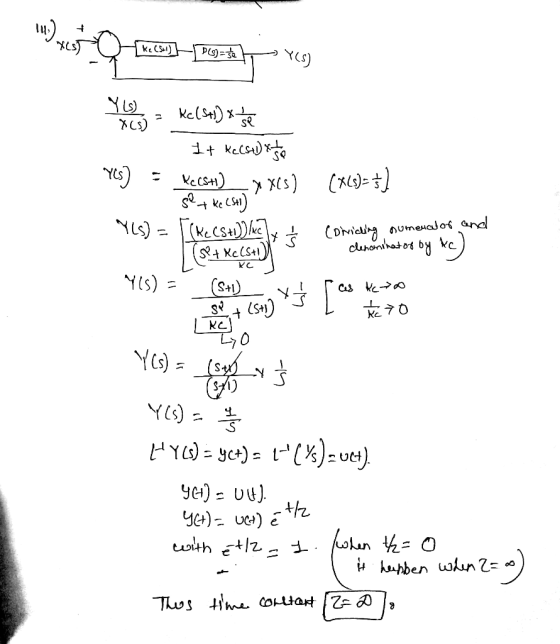 III.) +
X(S) Kc(S+1) P(S)=1/S² → Y(S)
−
Y(S)/X(S) = Kc(S+1) × 1/S² / 1 + Kc(S+1) × 1/S²
Y(S) = Kc(S+1) / S² + Kc(S+1) × X(S) (X(S)=1/S]
Y(S) = [(Kc(S+1))/Kc / (S² + Kc(S+1)) / Kc] × 1/S (Dividing numerator and denominator by Kc)
Y(S) = (S+1) / S²/Kc + (S+1) × 1/S [as Kc→∞ 1/Kc → 0
↳ 0
Y(S) = (S+1)/(S+1) × 1/S
Y(S) = 1/S
L⁻¹ Y(S) = y(t) = L⁻¹ (1/S) = u(t).
y(t) = u(t).
y(t) = u(t) e^-t/τ
with e^-t/τ = 1. (when t/τ = 0 it happen when τ = ∞)
Thus time constant τ = ∞.